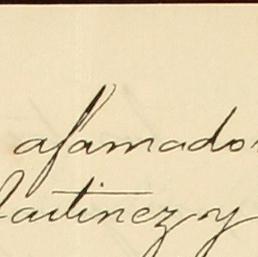 afamado
Martinez y